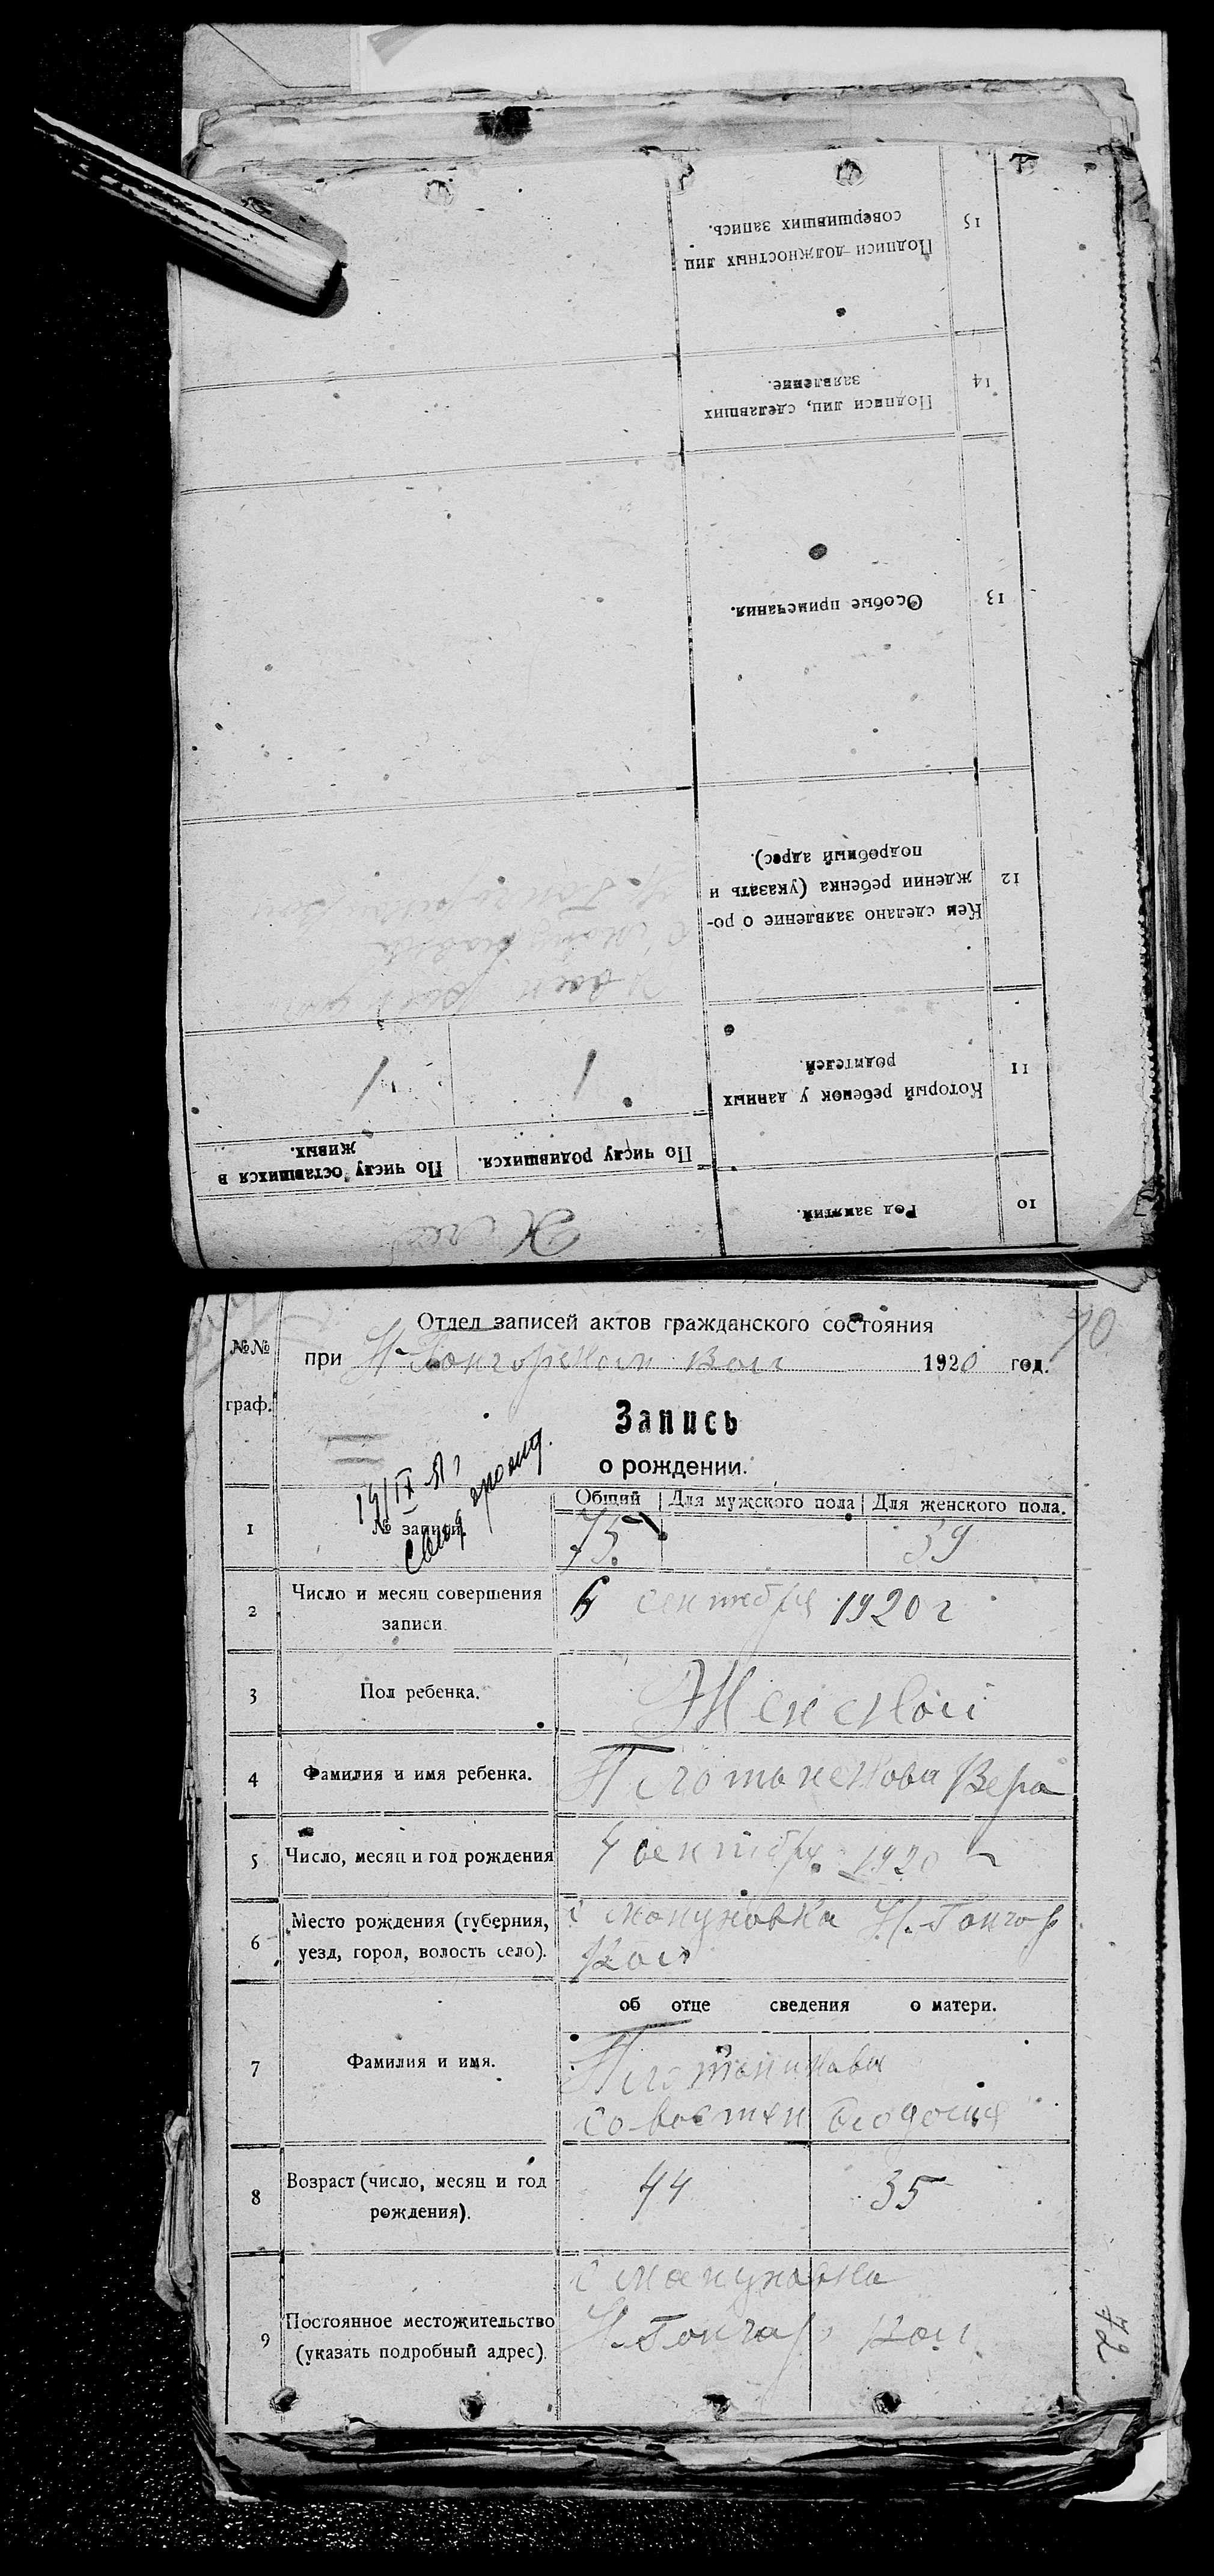 15
Подписи должностных лиц
совершивших запись.
14
Подписи лиц, сделавших
заявление.
13
Особые примечания.
12
Кем сделано заявление о ро-
ждении ребенка (указать и
подробный адрес).
11
Который ребенок у данных
родителей.
1 1
По числу родившихся.
По числу оставшихся в
живых.
10
Род занятий.
Отдел записей актов гражданского состояния
№№
граф.
при Н-Гончарском вол 1920 год.
70
Запись
о рождении.
Общий Для мужского пола Для женского пола.
1 № записи. 75. 39
2 Число и месяц совершения
записи
сентября 1920 г
3 Пол ребенка. Женской
4 Фамилия и имя ребенка. Вера
5 Число, месяц и год рождения 4 сентября 1920 г
6 Место рождения (губерния,
уезд, город, волость село).
с Н. Гончар
вол
об отце сведения о матери.
7 Фамилия и имя.
Феодосия
8 Возраст (число, месяц и год
рождения).
44 35
9 Постоянное местожительство
(указать подробный адрес).
с
Н-Гончар вол
72